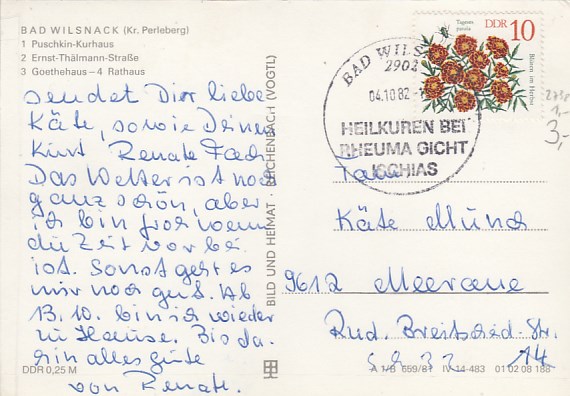 BAD WILSNACK (Kr. Perleberg)
1 Puschkin-Kurhaus
2 Ernst-Thälmann-Straße
3 Goethehaus – 4 Rathaus
sendet Dir liebe
Käte, sowie Deinen
Kurt Renate
Das Wetter ist noch
ganz schön, aber
ich bin froh wenn
die Zeit vorbei
ist. Sonst geht es
mir noch gut. Ab
13.10. bin ich wieder
zu Hause. Bis da-
hin alles gute
von Renate.
DDR 0,25 M
BILD UND HEIMAT · REICHENBACH (VOGTL)
Tagetes patula
DDR 10
Blumen im Herbst
BAD WILS
2902
04.10.82
HEILKUREN BEI
RHEUMA GICHT
ISCHIAS
3,-
Käte Münch
9612 Meerane
Rud. Breitscheid-Str.
14
A 1/B 659/81 IV-14-483 01 02 08 188